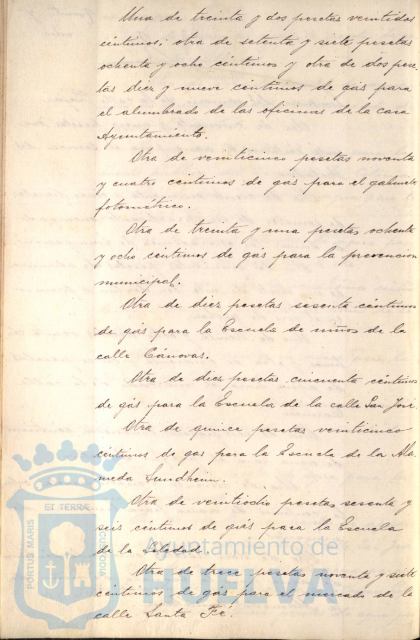 Una de treinta y dos pesetas veintidos
céntimos; otra de setenta y siete pesetas
ochenta y ocho céntimos y otra de dos pese
tas diez y nueve céntimos de gas para
el alumbrado de las oficinas de la casa
Ayuntamiento.
Otra de veinticinco pesetas noventa
y cuatro céntimos de gas para el gabinete
fotométrico.
Otra de treinta y una pesetas ochenta
y ocho céntimos de gas para la prevencion
municipal.
Otra de diez pesetas sesenta céntimos
de gas para la Escuela de niños de la
calle Cánovas.
Otra de diez pesetas cincuenta céntimos
de gas para la Escuela de la calle San José.
Otra de quince pesetas veinticinco
céntimos de gas para la Escuela de la Ala
meda Sundheim.
Otra de veintiocho pesetas sesenta y
seis céntimos de gas para la Escuela
de la Soledad.
Otra de trece pesetas noventa y siete
céntimos de gas para el mercado de la
calle Santa Fé.
PORTUS MARIS
ET TERRÆ
CUSTODIA
Ayuntamiento de
HUELVA